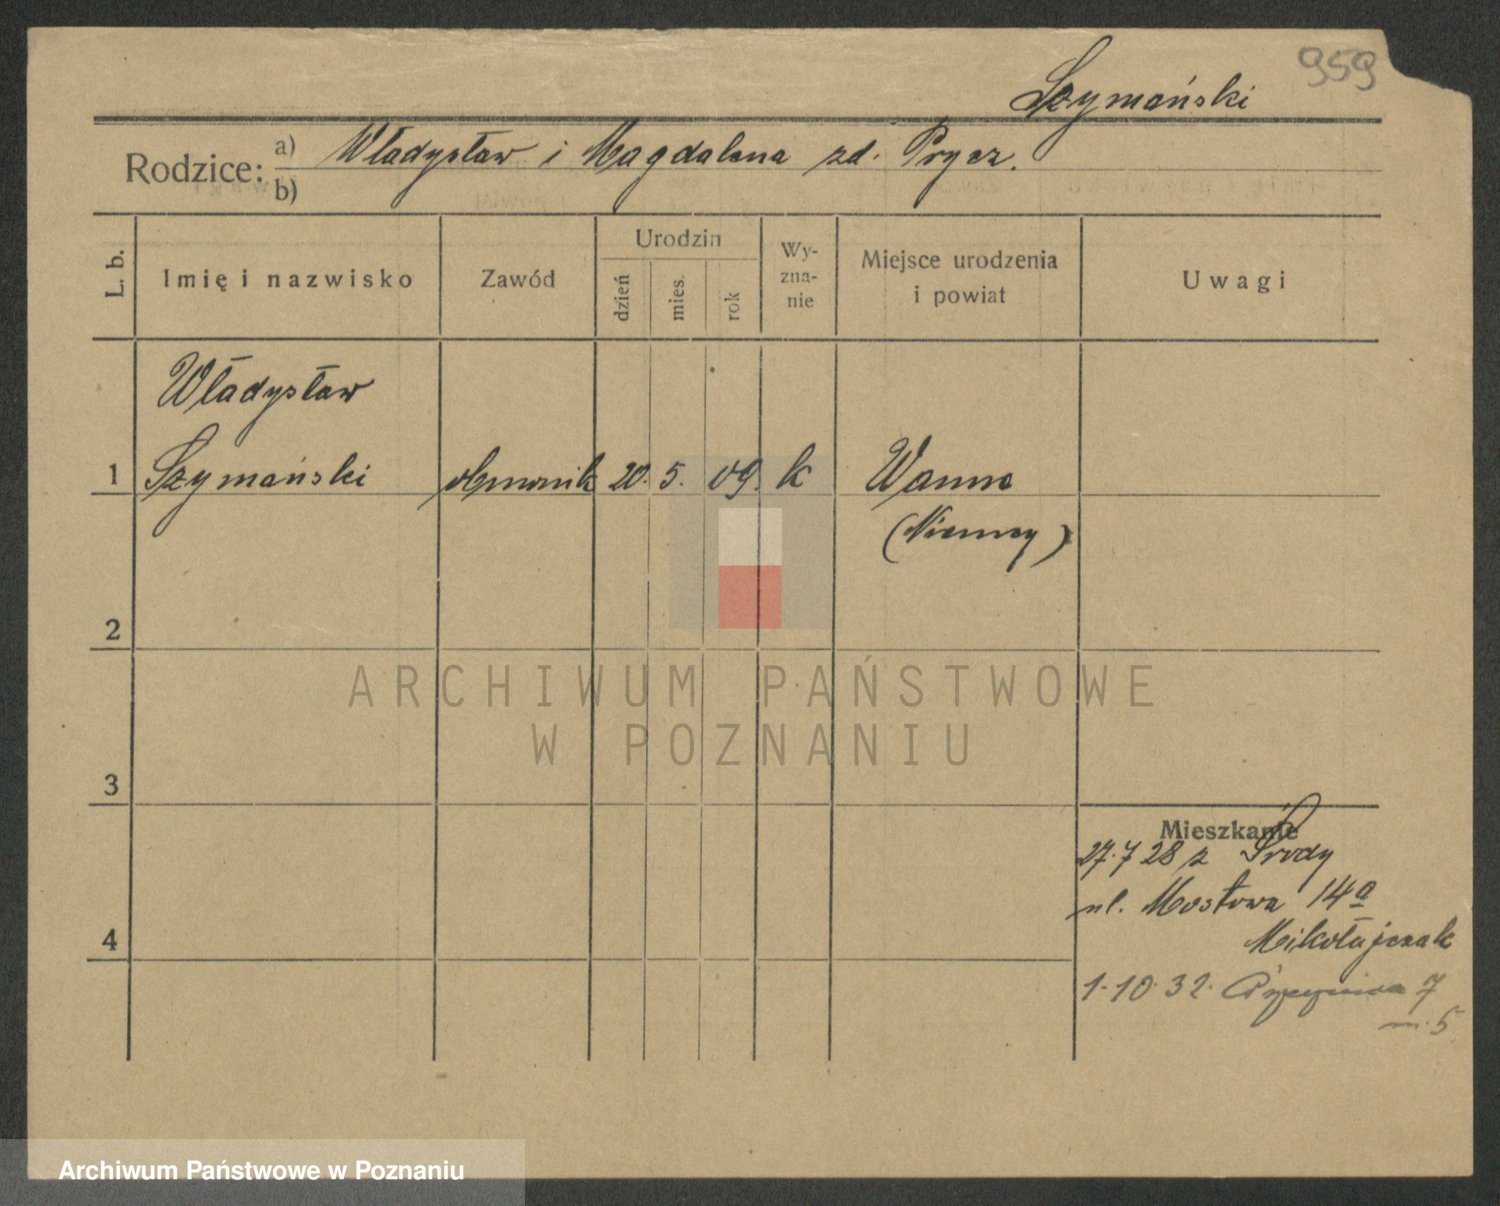 959
Szymański
Rodzice: a) Władysław i Magdalena zd. Prycz.
b)
L. b.
Imię i nazwisko
Zawód
Urodzin
dzień
mies.
rok
Wy-
zna-
nie
Miejsce urodzenia
i powiat
Uwagi
Władysław
1 Szymański 20. 5. 09. k Wanne
(Niemcy)
2
ARCHIWUM PAŃSTWOWE
W POZNANIU
3
Mieszkanie
27.7 28 z Środy
ul. Mostowa 14a
Mikołajczak
4
1.10.32. 7
m. 5
Archiwum Państwowe w Poznaniu